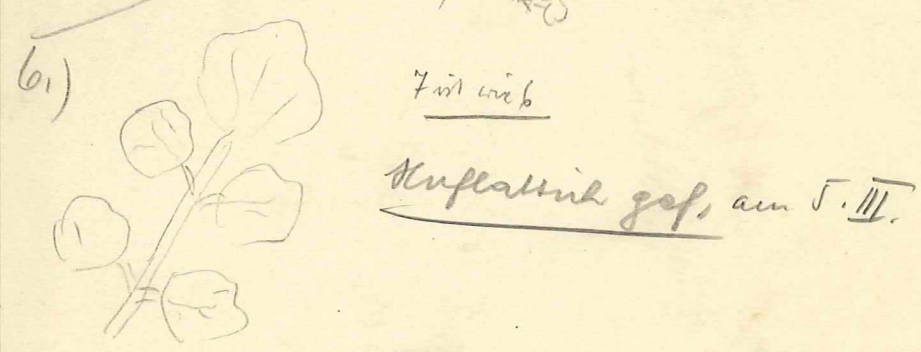 6.)
7 ist wie 6
Huflattich gef. am 5. III.